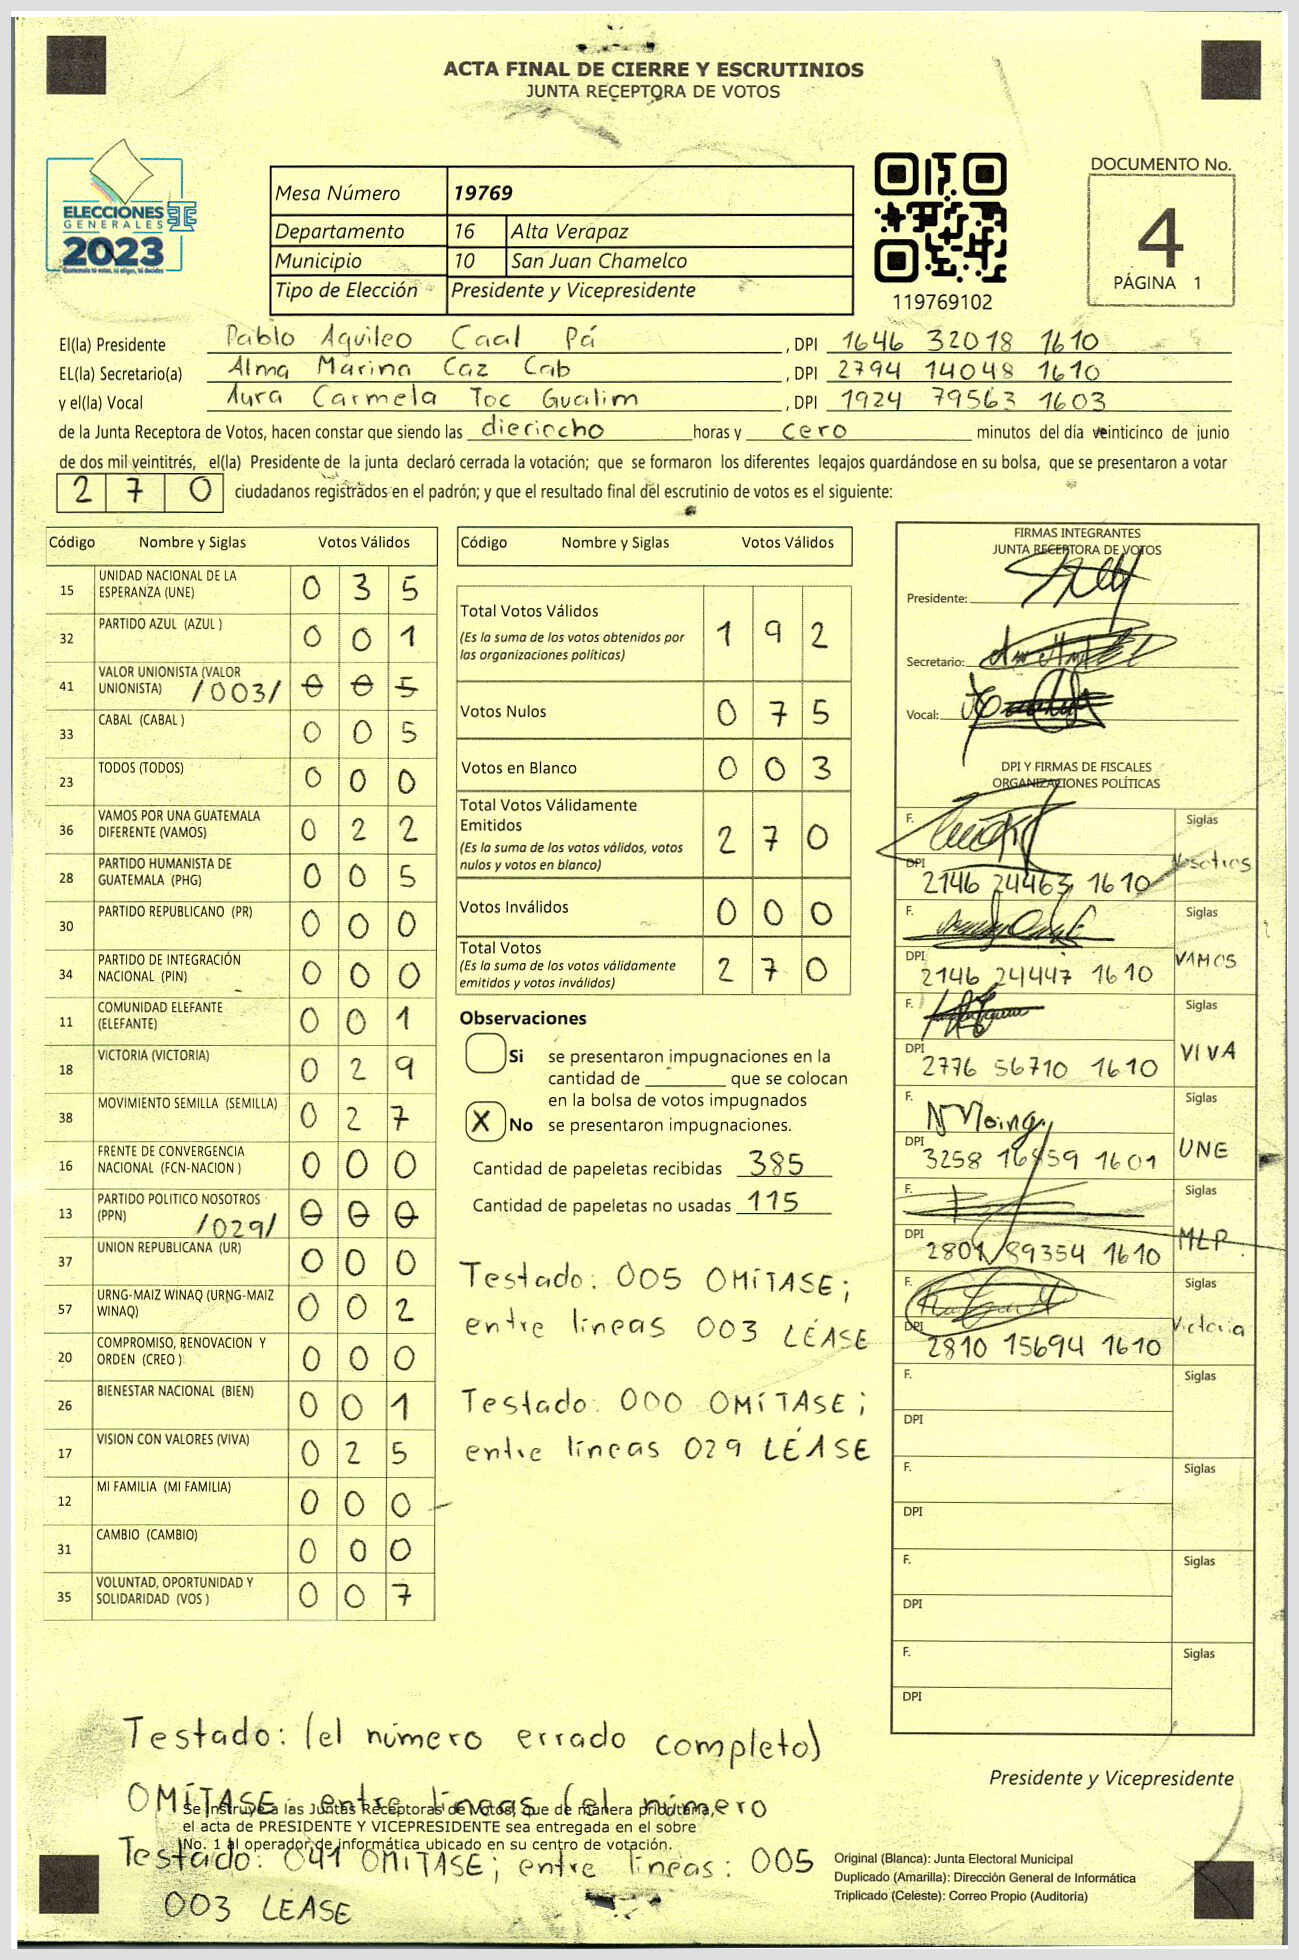 ACTA FINAL DE CIERRE Y ESCRUTINIOS
JUNTA RECEPTORA DE VOTOS
ELECCIONES
GENERALES
2023
Guatemala tú votas, tú eliges, tú decides
Mesa Número 19769
Departamento 16 Alta Verapaz
Municipio 10 San Juan Chamelco
Tipo de Elección Presidente y Vicepresidente
119769102
DOCUMENTO No.
4
PÁGINA 1
El(la) Presidente Pablo Aquileo Caal Pá , DPI 1646 32018 1610
EL(la) Secretario(a) Alma Marina Caz Cab , DPI 2794 14048 1610
y el(la) Vocal Aura Carmela Toc Gualim , DPI 1924 79563 1603
de la Junta Receptora de Votos, hacen constar que siendo las dieciocho horas y cero minutos del día veinticinco de junio
de dos mil veintitrés, el(la) Presidente de la junta declaró cerrada la votación; que se formaron los diferentes legajos guardándose en su bolsa, que se presentaron a votar
2 7 0 ciudadanos registrados en el padrón; y que el resultado final del escrutinio de votos es el siguiente:
Código Nombre y Siglas Votos Válidos
15 UNIDAD NACIONAL DE LA ESPERANZA (UNE) 0 3 5
32 PARTIDO AZUL (AZUL ) 0 0 1
41 VALOR UNIONISTA (VALOR UNIONISTA) /003/ 0 0 5
33 CABAL (CABAL ) 0 0 5
23 TODOS (TODOS) 0 0 0
36 VAMOS POR UNA GUATEMALA DIFERENTE (VAMOS) 0 2 2
28 PARTIDO HUMANISTA DE GUATEMALA (PHG) 0 0 5
30 PARTIDO REPUBLICANO (PR) 0 0 0
34 PARTIDO DE INTEGRACIÓN NACIONAL (PIN) 0 0 0
11 COMUNIDAD ELEFANTE (ELEFANTE) 0 0 1
18 VICTORIA (VICTORIA) 0 2 9
38 MOVIMIENTO SEMILLA (SEMILLA) 0 2 7
16 FRENTE DE CONVERGENCIA NACIONAL (FCN-NACION ) 0 0 0
13 PARTIDO POLITICO NOSOTROS (PPN) /029/ 0 0 0
37 UNION REPUBLICANA (UR) 0 0 0
57 URNG-MAIZ WINAQ (URNG-MAIZ WINAQ) 0 0 2
20 COMPROMISO, RENOVACION Y ORDEN (CREO ) 0 0 0
26 BIENESTAR NACIONAL (BIEN) 0 0 1
17 VISION CON VALORES (VIVA) 0 2 5
12 MI FAMILIA (MI FAMILIA) 0 0 0
31 CAMBIO (CAMBIO) 0 0 0
35 VOLUNTAD, OPORTUNIDAD Y SOLIDARIDAD (VOS ) 0 0 7
Código Nombre y Siglas Votos Válidos
Total Votos Válidos 1 9 2
(Es la suma de los votos obtenidos por
las organizaciones políticas)
Votos Nulos 0 7 5
Votos en Blanco 0 0 3
Total Votos Válidamente
Emitidos 2 7 0
(Es la suma de los votos válidos, votos
nulos y votos en blanco)
Votos Inválidos 0 0 0
Total Votos 2 7 0
(Es la suma de los votos válidamente
emitidos y votos inválidos)
Observaciones
Si se presentaron impugnaciones en la
cantidad de ________ que se colocan
en la bolsa de votos impugnados
X No se presentaron impugnaciones.
Cantidad de papeletas recibidas 385
Cantidad de papeletas no usadas 115
Testado: 005 OMÍTASE;
entre líneas 003 LÉASE
Testado: 000 OMÍTASE;
entre líneas 029 LÉASE
FIRMAS INTEGRANTES
JUNTA RECEPTORA DE VOTOS
Presidente:
Secretario:
Vocal:
DPI Y FIRMAS DE FISCALES
ORGANIZACIONES POLÍTICAS
F. Siglas
DPI 2146 24463 1610 Nosotros
F. Siglas
DPI 2146 24447 1610 VAMOS
F. Siglas
DPI 2776 56710 1610 VIVA
F. Siglas
DPI 3258 16859 1601 UNE
F. Siglas
DPI 2801 89354 1610 MLP
F. Siglas
DPI 2810 15694 1610 Victoria
F. Siglas
DPI
F. Siglas
DPI
F. Siglas
DPI
F. Siglas
DPI
Presidente y Vicepresidente
Testado: (el número errado completo)
OMÍTASE; entre líneas (el número
Se instruye a las Juntas Receptoras de Votos, que de manera prioritaria,
el acta de PRESIDENTE Y VICEPRESIDENTE sea entregada en el sobre
No. 1 al operador de informática ubicado en su centro de votación.
Testado: 041 OMITASE; entre lineas: 005
003 LEASE
Original (Blanca): Junta Electoral Municipal
Duplicado (Amarilla): Dirección General de Informática
Triplicado (Celeste): Correo Propio (Auditoria)